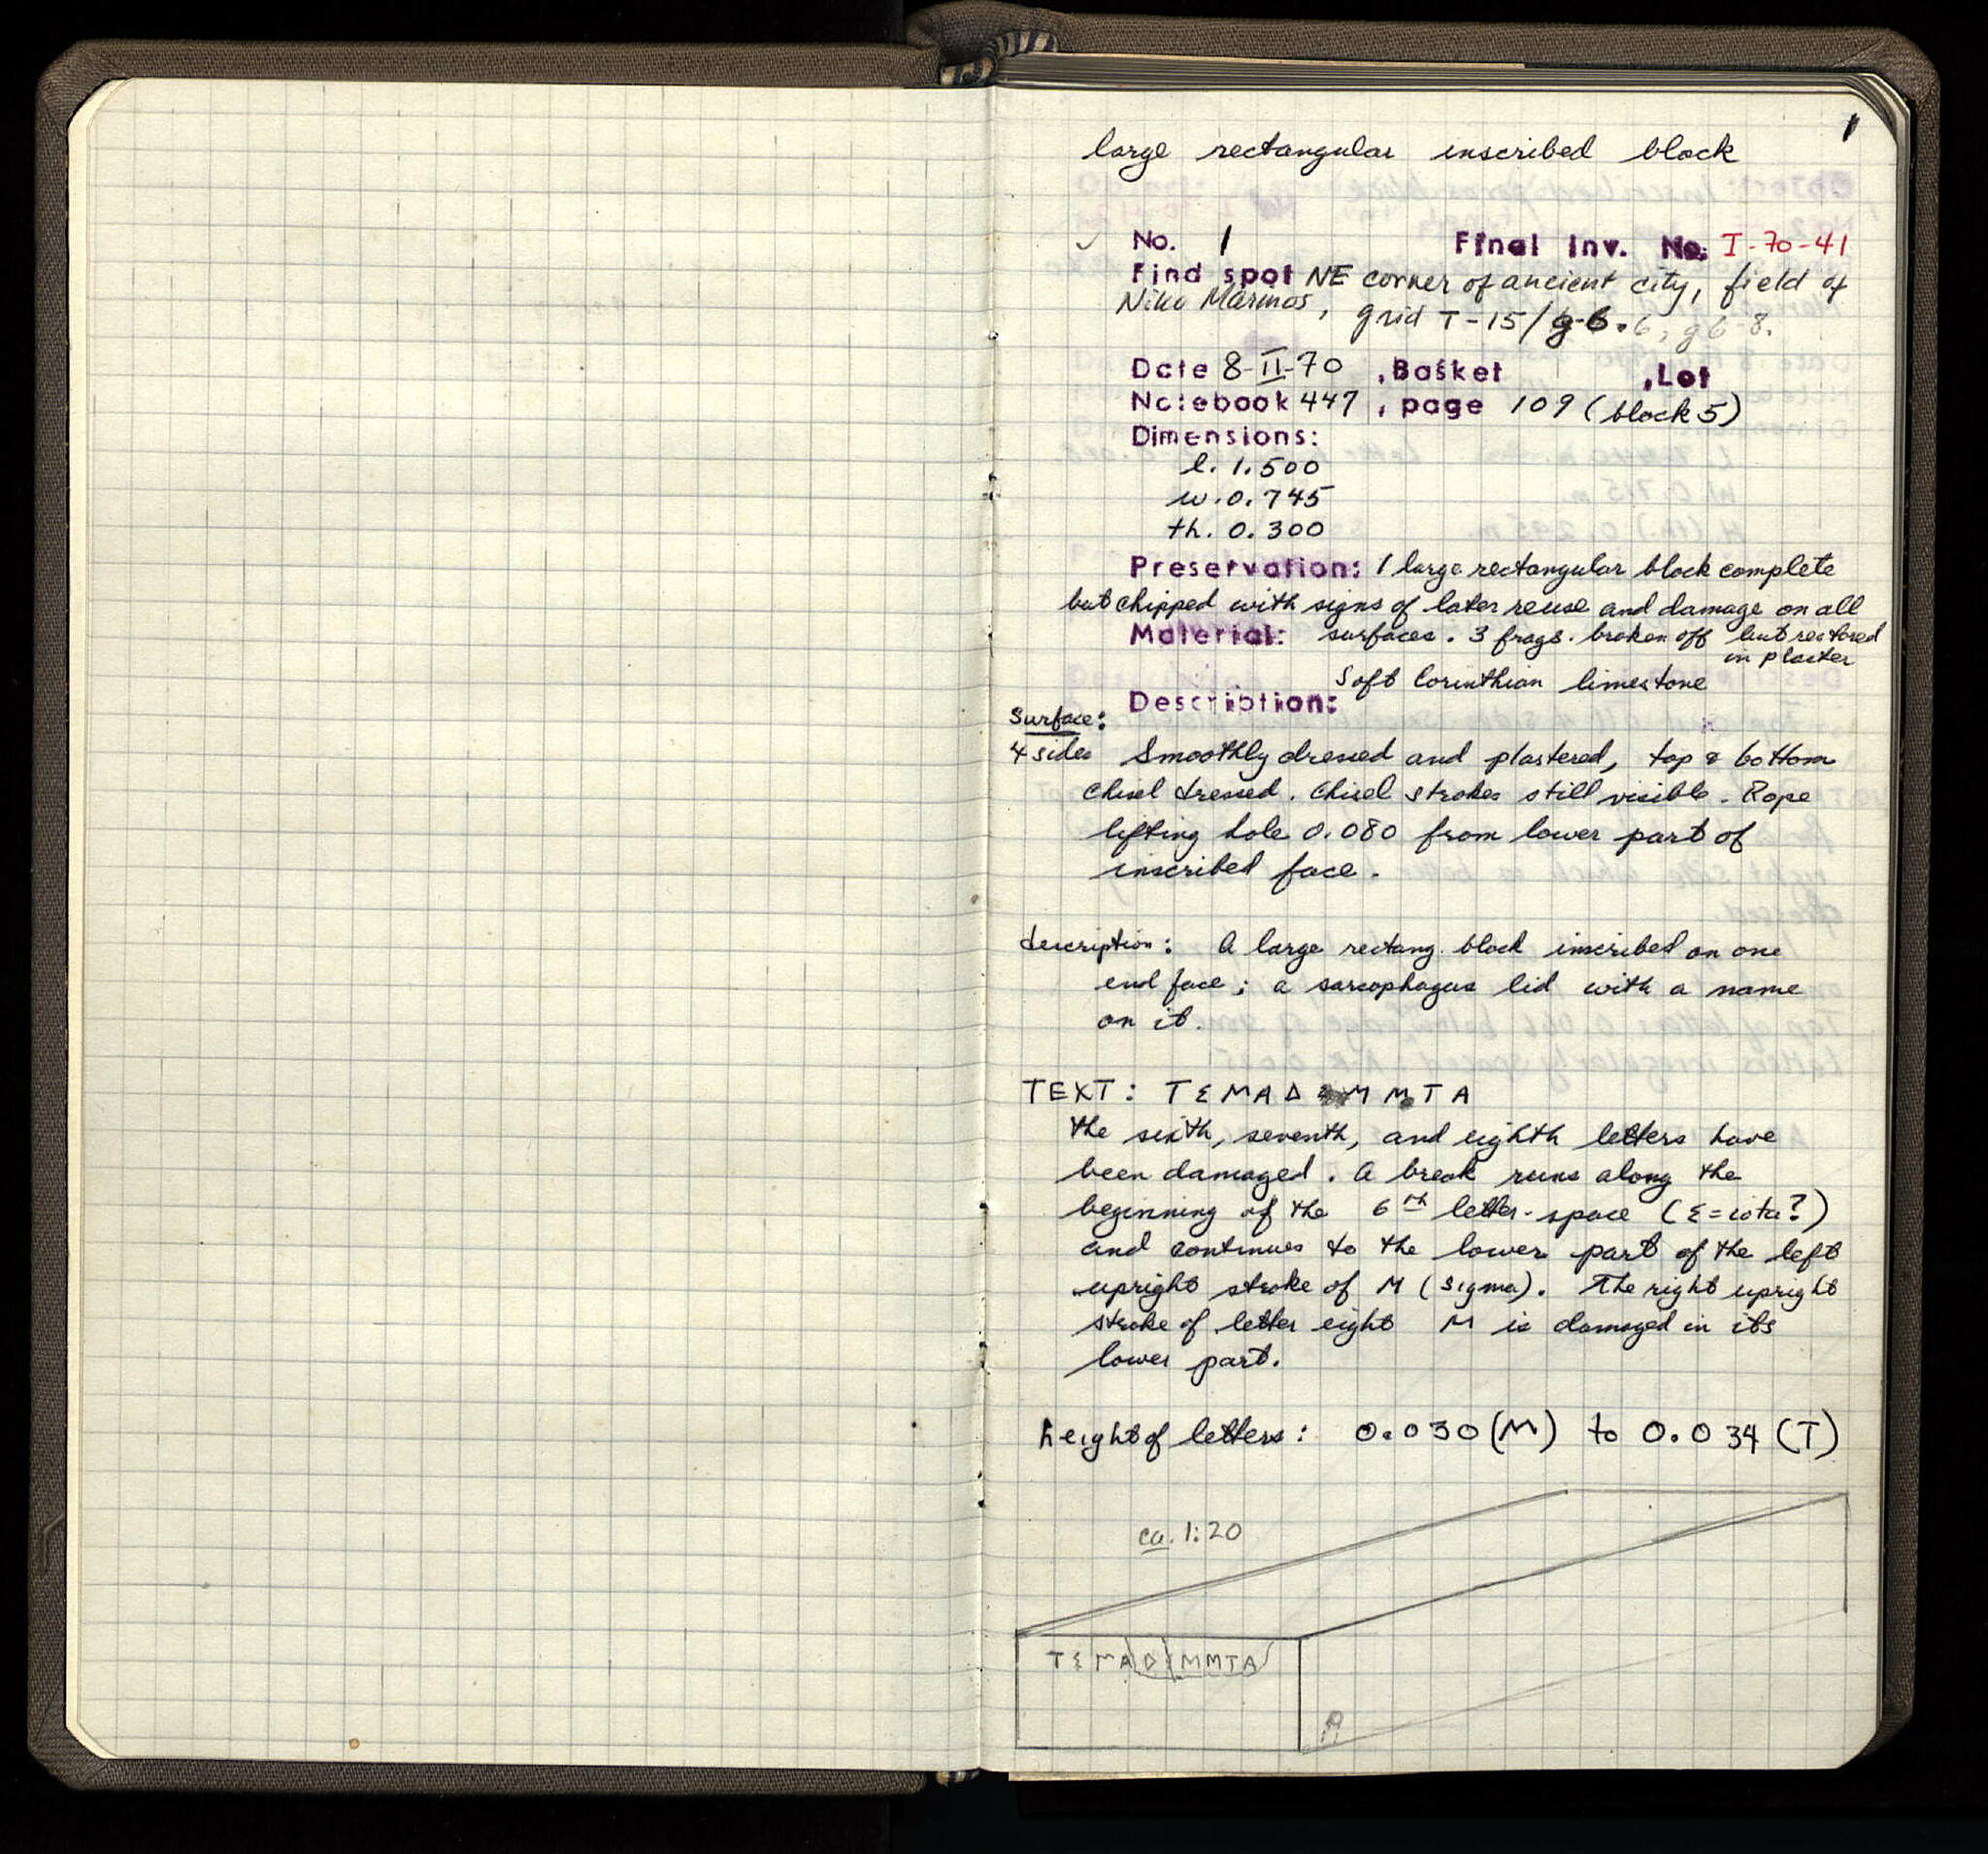 1
large rectangular inscribed block
✓ No. 1 Final Inv. No: I-70-41
Find spot NE corner of ancient city, field of
Niko Marinos, grid T-15/g-6.6, g6-8.
Date 8-II-70 , Basket , Lot
Notebook 447 , page 109 (block 5)
Dimensions:
l. 1.500
w. 0.745
th. 0.300
Preservation: 1 large rectangular block complete
but chipped with signs of later reuse and damage on all
Material: surfaces. 3 frags. broken off but restored
in plaster
Soft Corinthian limestone
Description:
Surface:
4 sides Smoothly dressed and plastered, top & bottom
chisel dressed. Chisel strokes still visible. Rope
lifting hole 0.080 from lower part of
inscribed face.
description: A large rectang. block inscribed on one
end face; a sarcophagus lid with a name
on it.
TEXT: T Σ M A Δ Σ M M T A
the sixth, seventh, and eighth letters have
been damaged. A break runs along the
beginning of the 6th letter-space (Σ=iota?)
and continues to the lower part of the left
upright stroke of M (sigma). The right upright
stroke of letter eight M is damaged in its
lower part.
height of letters: 0.030 (M) to 0.034 (T)
ca. 1:20
T Σ M A D Σ M M T A